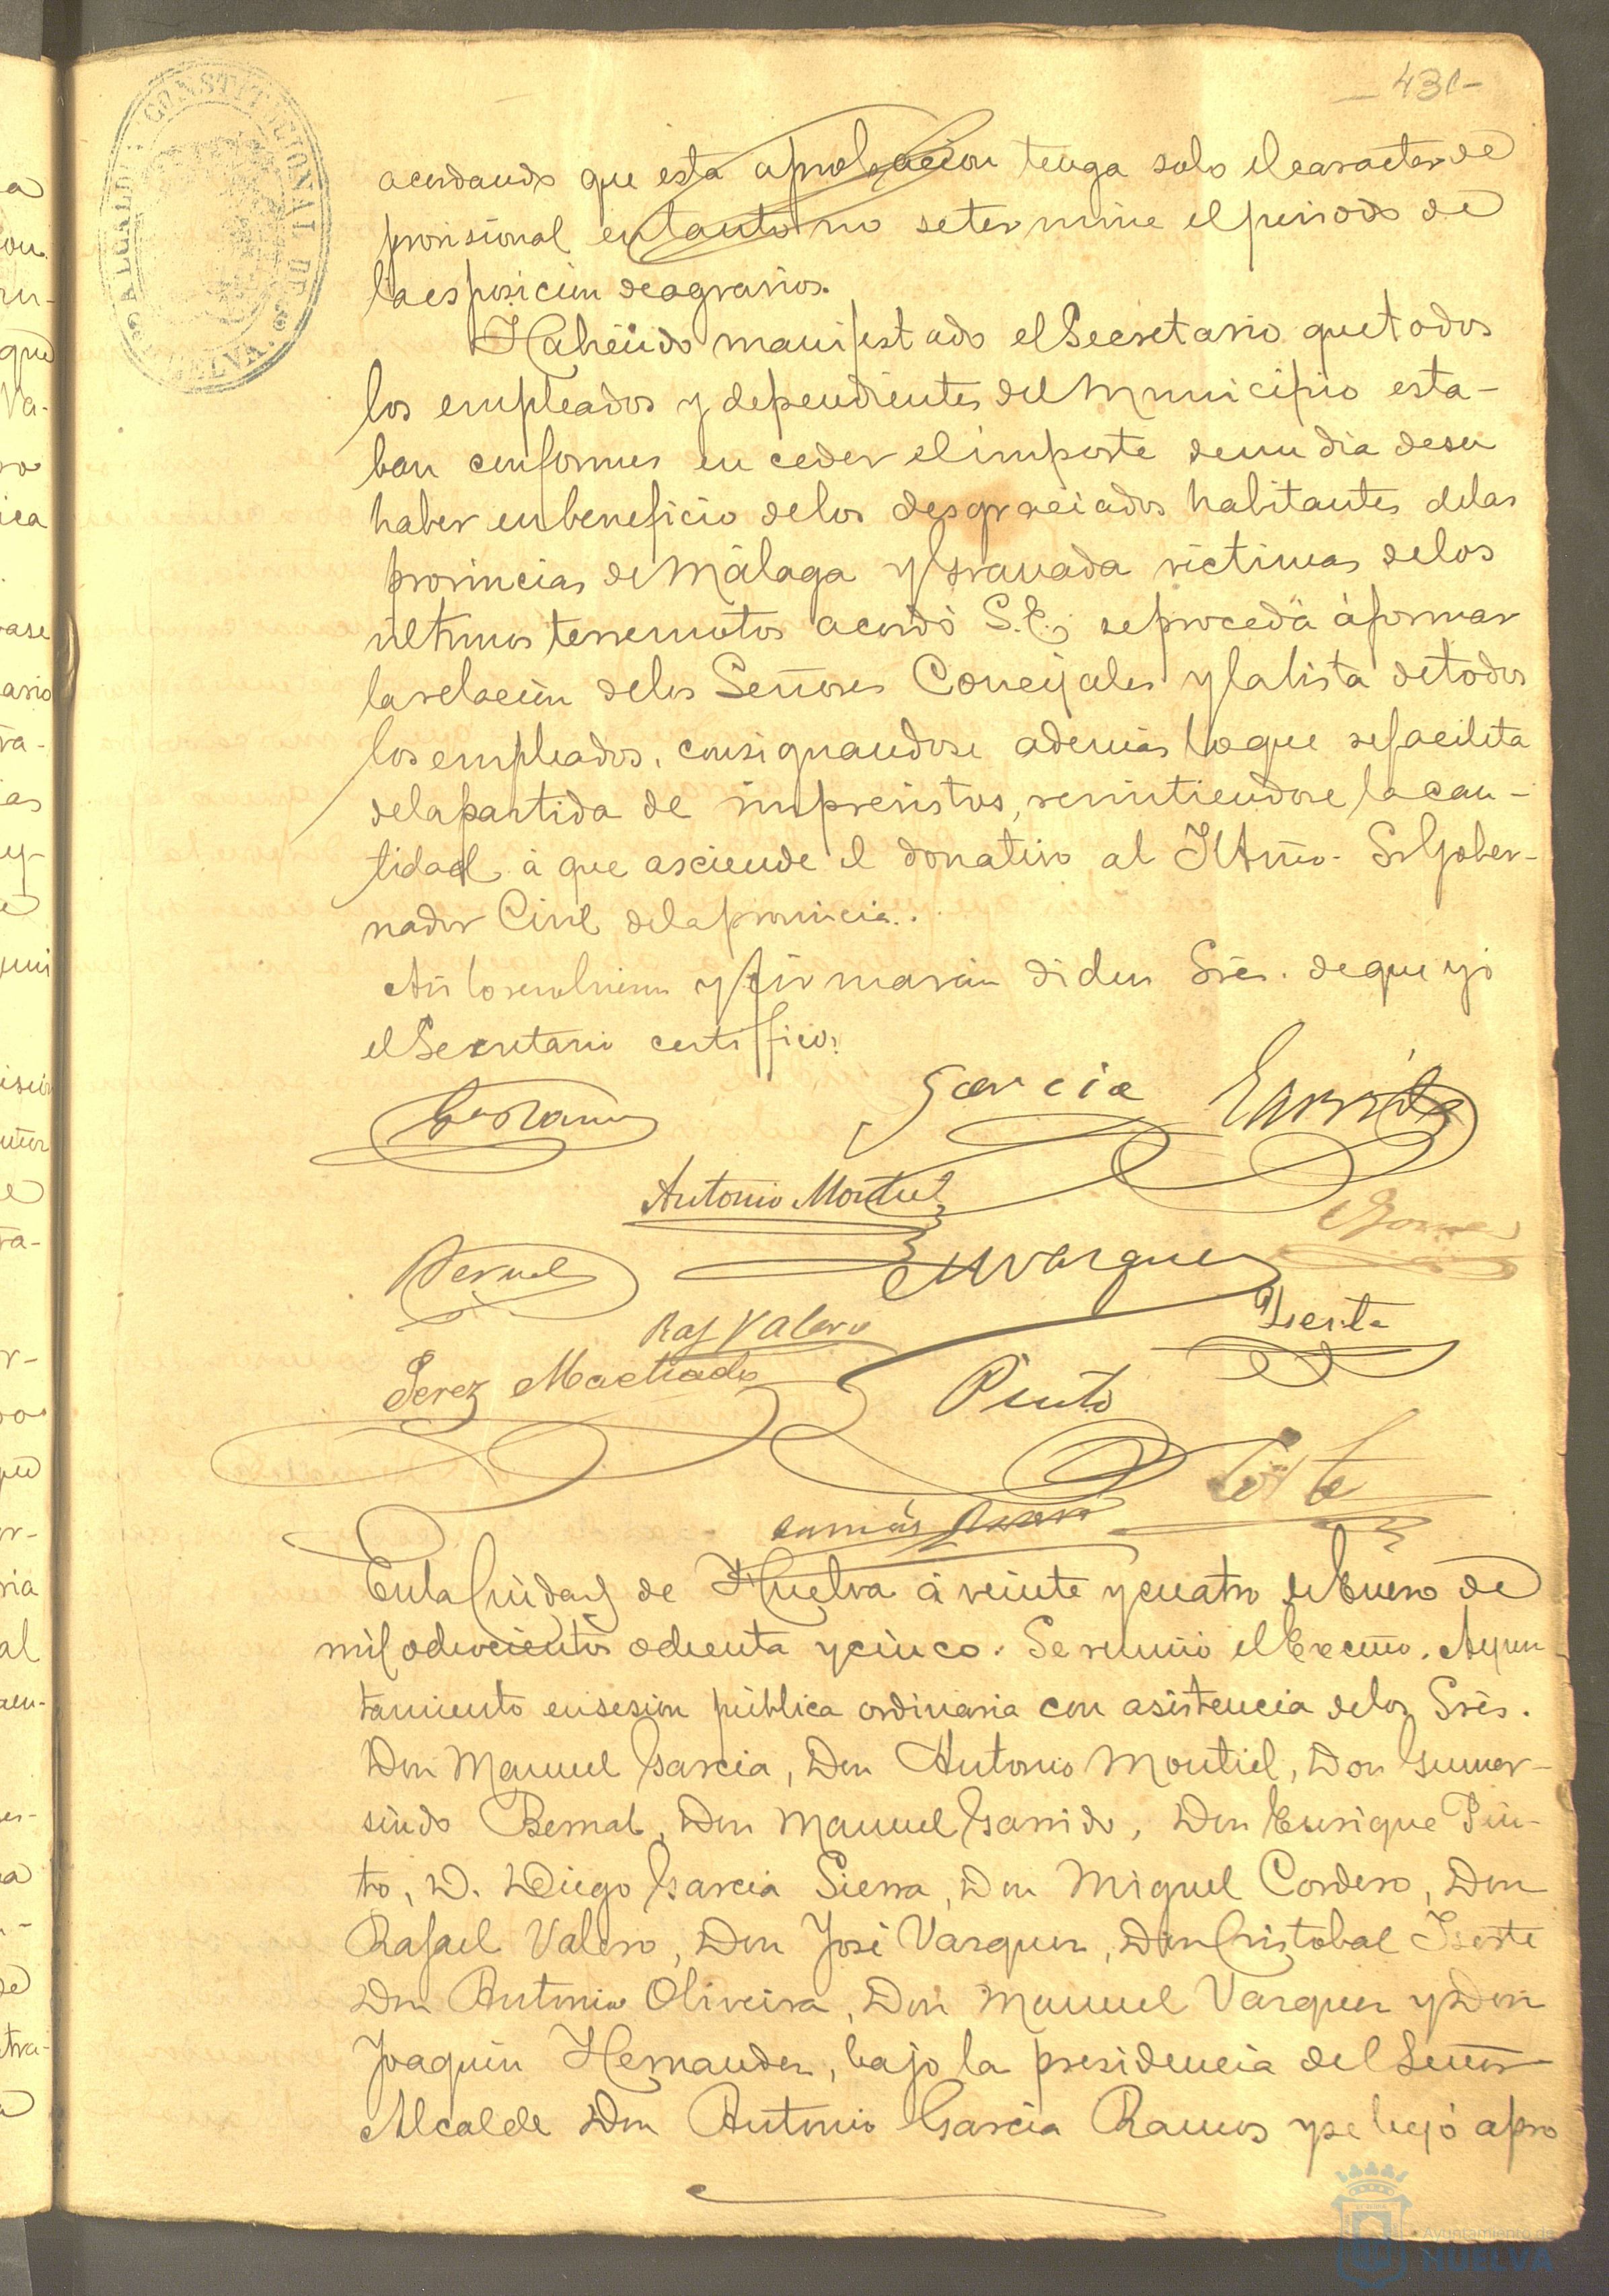 - 431-
ALCALDIA CONSTITUCIONAL DE HUELVA.
acordando que esta aprobacion tenga solo el caracter de
provisional en tanto no se termine el periodo de
la esposicion de agravios.
Habiendo manifestado el Secretario que todos
los empleados y dependientes del Municipio esta-
ban conformes en ceder el importe de un dia de su
haber en beneficio de los desgraciados habitantes de las
provincias de Málaga y Granada victimas de los
ultimos terremotos acordó S.E. se proceda á formar
la relacion de los Señores Concejales y la lista de todos
los empleados, consignandose ademas lo que se facilita
de la partida de imprevistos, remitiendose la can-
tidad á que asciende el donativo al Iltmo. Sr Gober-
nador Civil de la provincia.
Asi lo resolvieron y firmaran dichos Sres. de que yo
el Secretario certifico.
Garcia Garrido
Ga Ramos
Antonio Montiel
Gomez
Bernal
M Vazquez
Iserte
Raf Valero
Perez Machado
Pinto
En la Ciudad de Huelva á veinte y cuatro de Enero de
mil ochocientos ochenta y cinco. Se reunió el Excmo. Ayun
tamiento en sesion pública ordinaria con asistencia de los Sres.
Don Manuel Garcia, Don Antonio Montiel, Don Gumer-
sindo Bernal, Don Manuel Garrido, Don Enrique Pin-
to, D. Diego Garcia Sierra, Don Miguel Cordero, Don
Rafael Valero, Don José Vazquez, Don Cristobal Iserte
Don Antonio Oliveira, Don Manuel Vazquez y Don
Joaquin Hernandez, bajo la presidencia del Señor
Alcalde Don Antonio Garcia Ramos y se leyó apro
Ayuntamiento de
HUELVA